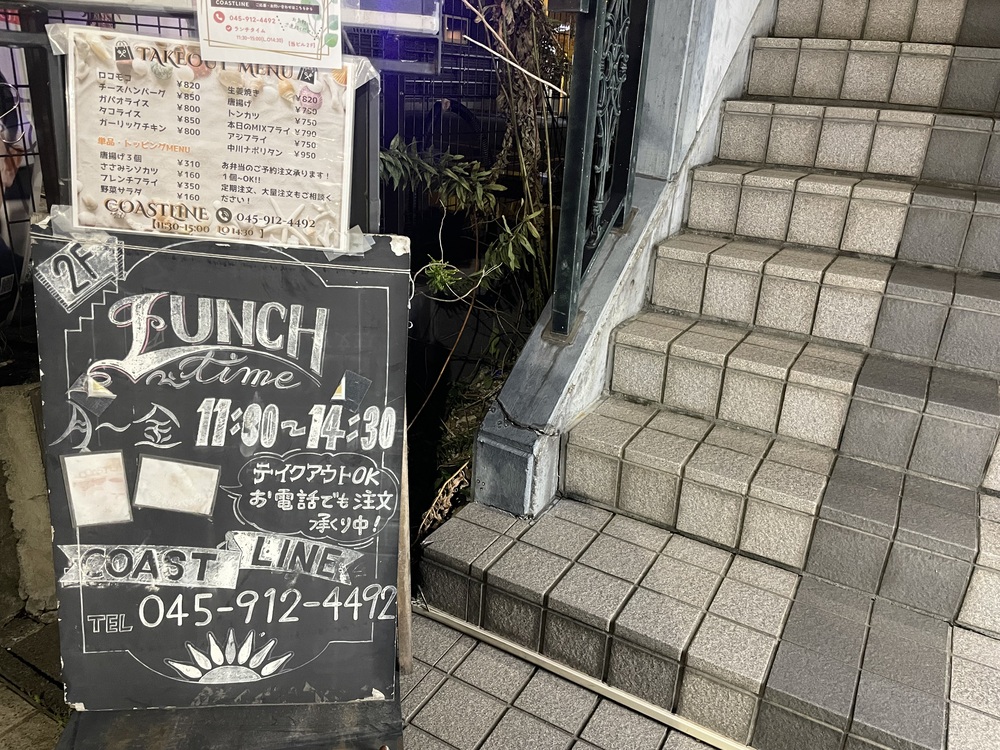 COASTLINE
045-912-4492
ランチタイム
TAKEOUT MENU
ロコモコ ¥820
チーズハンバーグ ¥850
ガパオライス ¥800
タコライス ¥850
ガーリックチキン ¥800
単品・トッピングMENU
唐揚げ3個 ¥310
ささみシソカツ ¥160
フレンチフライ ¥350
野菜サラダ ¥160
生姜焼き ¥820
唐揚げ ¥750
トンカツ ¥750
本日のMIXフライ ¥790
アジフライ ¥750
中川ナポリタン ¥950
お弁当のご予約注文承ります!
1個~OK!!
定期注文、大量注文もご相談く
ださい!
COASTLINE 045-912-4492
【11:30-15:00 LO14:30】
2F
LUNCH
time
月〜金 11:30〜14:30
テイクアウトOK
お電話でも注文
承り中!
COAST LINE
TEL 045-912-4492